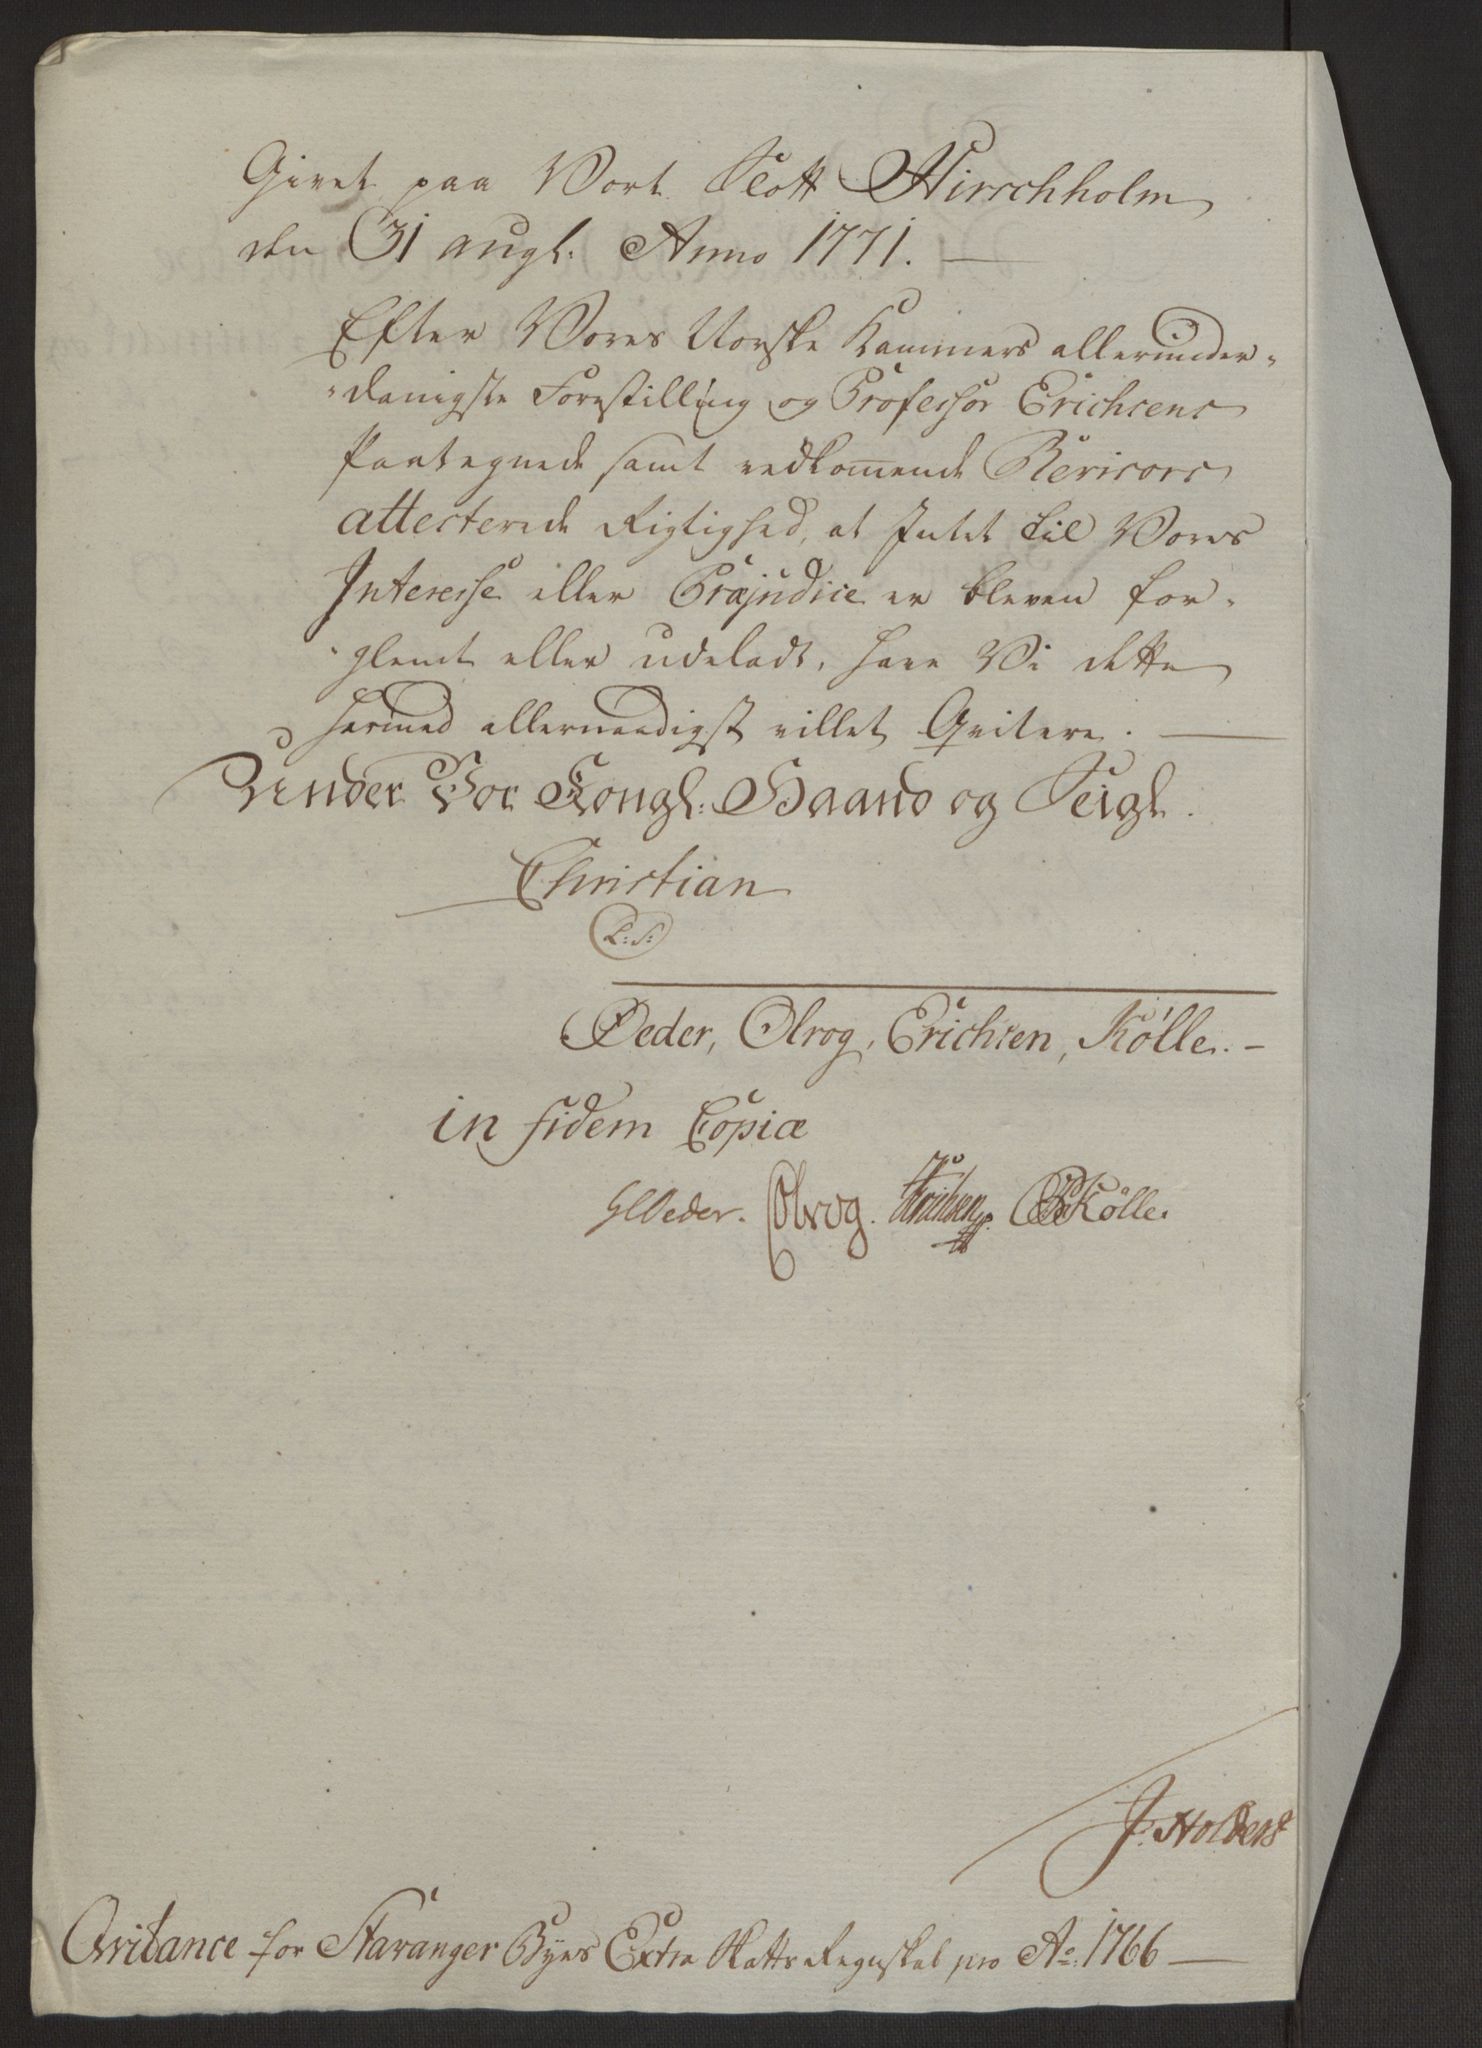 Givet paa Vort Slott Hirschholm
den 31 augl: Anno 1771. —
Efter Vores Norske Kammers allerunder-
-danigste Forestilling og Professor Erichsens
Paategnede samt vedkom̄ende Revisors
attesterede Rigtighed, at Intet til Vores
Interesse eller Præjudice er bleven for-
-glemt eller udeladt, have Vi dette
hermed allernaadigst villet Qvitere. —
Under Vor Kongl: Haand og Seigl.
Christian
L:S:
Oeder, Olrog, Erichsen, Kölle. -
in fidem Copiæ
GOeder. Olrog. Erichsen. Kölle.
J. Holberst
Qvitance for Stavanger Byes Extra Skatts Regnskab pro Ao: 1766 —